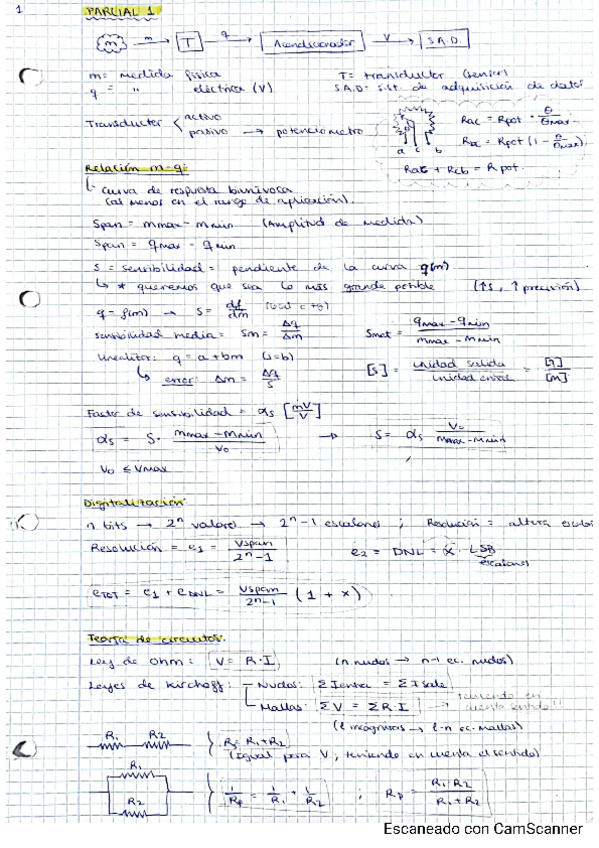 1
PARCIAL 1
m → m → T → q → Acondicionador → V → S.A.D.
m = medida física
T = transductor (sensor)
q = " eléctrica (V)
S.A.D = sist. de adquisición de datos
Transductor < activo
pasivo → potenciómetro
a c b
Rac = Rpot · θ/θmax
Rbc = Rpot (1 -
Rac + Rcb = Rpot
Relación m-q:
↳ curva de respuesta biunívoca
(al menos en el rango de aplicación).
Span = mmax - mmin (Amplitud de medida)
Span = qmax - qmin
S = sensibilidad = pendiente de la curva q(m)
↳ * queremos que sea lo más grande posible (↑S, ↑ precisión)
q = f(m) → S = df/dm
sensibilidad media = Sm = Δq/Δm
Smet = qmax - qmin / mmax - mmin
Linealizar: q = a + bm (s=b)
[S] = unidad salida / unidad entrada = [q]/[m]
↳ error: Δm = Δq/S
Factor de sensibilidad = αs [mV/V]
αs = S · mmax - mmin / V0 → S = αs V0 / mmax - mmin
V0 ≤ Vmax
Digitalización
n bits → 2^n valores → 2^n - 1 escalones ; Resolución = altura
Resolución = e1 = Vspan / 2^n - 1
e2 = DNL = x · LSB
escalones
eTOT = e1 + eDNL = Vspan / 2^n - 1 (1 + x)
Teoría de circuitos.
Ley de Ohm: V = R·I (n nudos → n-1 ec. nudos)
Leyes de Kirchoff: - Nudos: ΣIentra = ΣIsale
- Mallas: ΣV = ΣR·I → teniendo en cuenta sentido!!
(l incógnitas → l-n ec. mallas)
R1 R2 } Rs = R1 + R2
(Igual para V, teniendo en cuenta el sentido)
R1
R2 } 1/Rp = 1/R1 + 1/R2 ; Rp = R1·R2 / R1 + R2
Escaneado con CamScanner